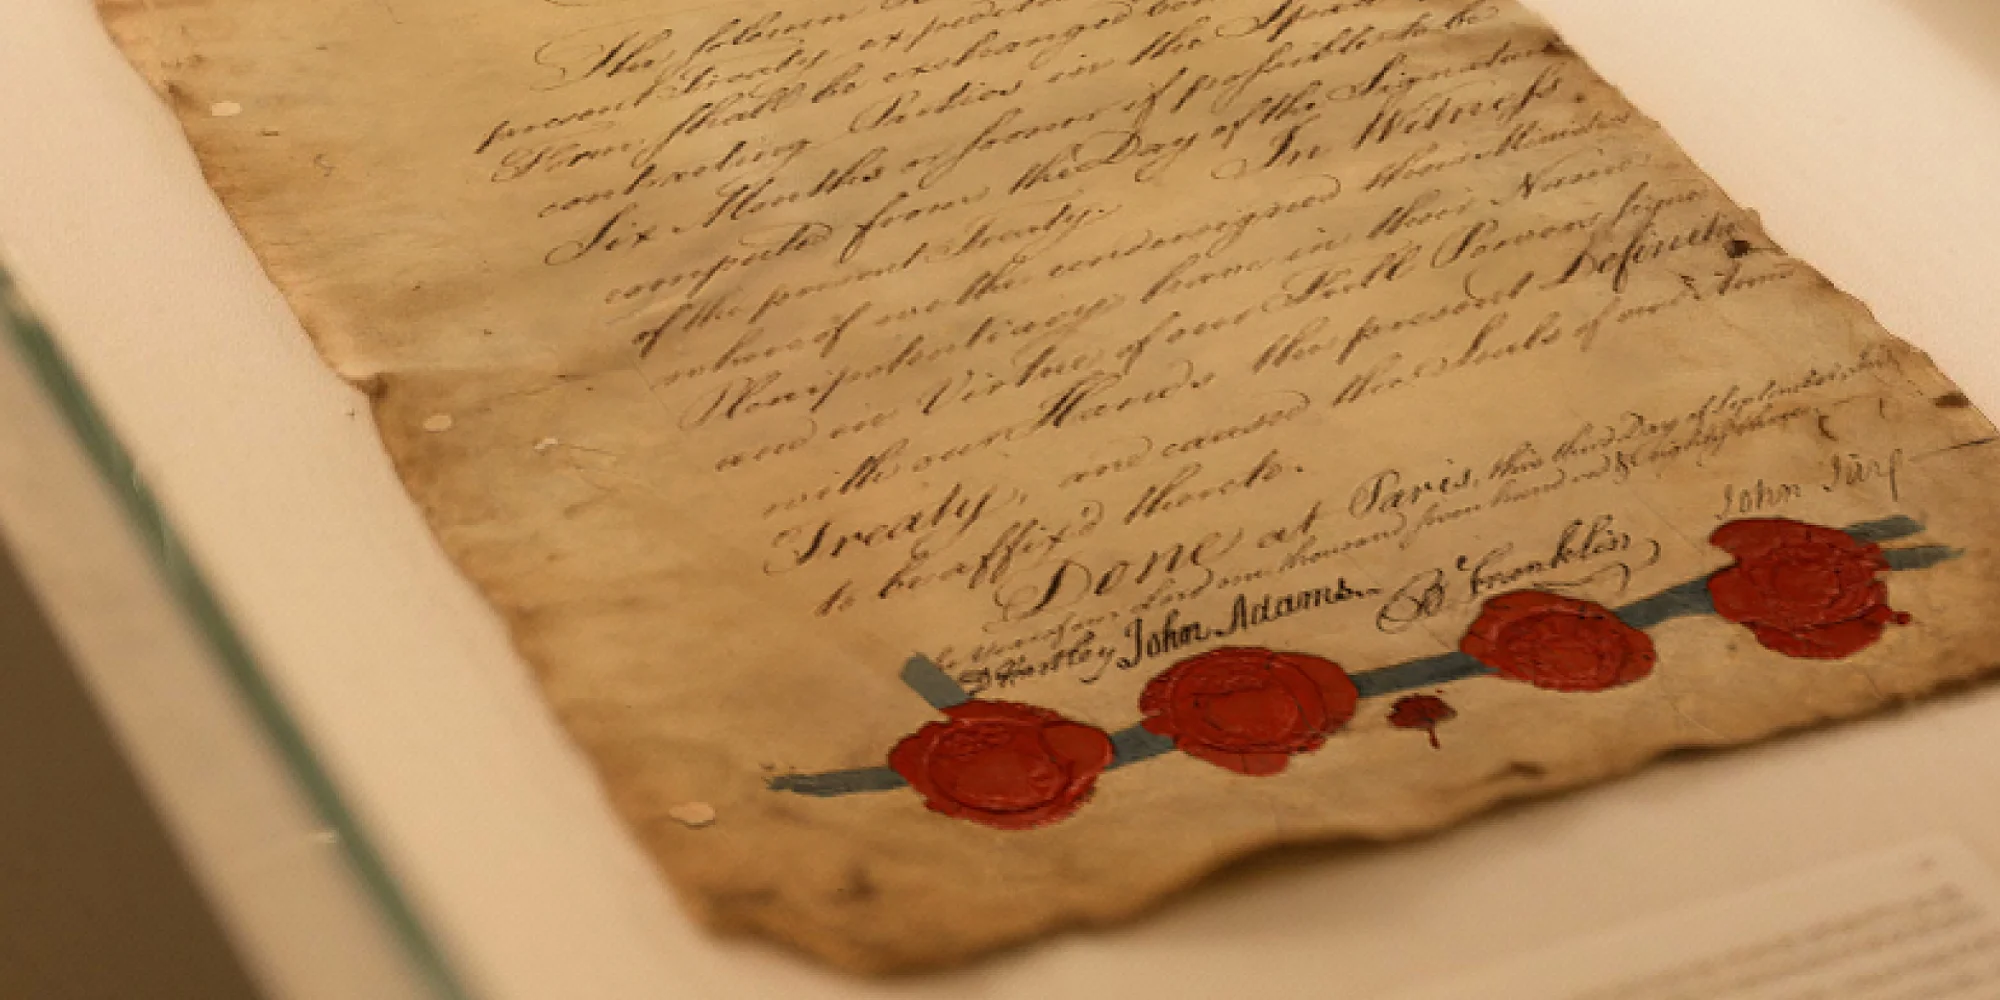 The solemn
present Treaty expedited
Form shall be exchanged
contracting Parties in the
Six Months or sooner if possible to be
computed from the Day of the Signature
of the present Treaty. In Witness
whereof we the undersigned their Ministers
Plenipotentiary have in their Name
and in Virtue of our Full Powers signed
with our Hands the present Definitive
Treaty, and caused the Seals of our Arms
to be affix'd thereto.
Done at Paris, this third Day of September,
our Lord one thousand seven hundred & eighty three
D Hartley John Adams B Franklin John Jay